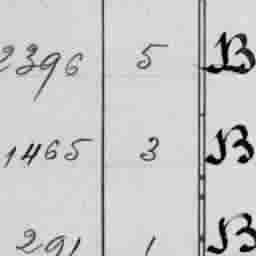 2396 5 B
1465 3 B
291 1 B